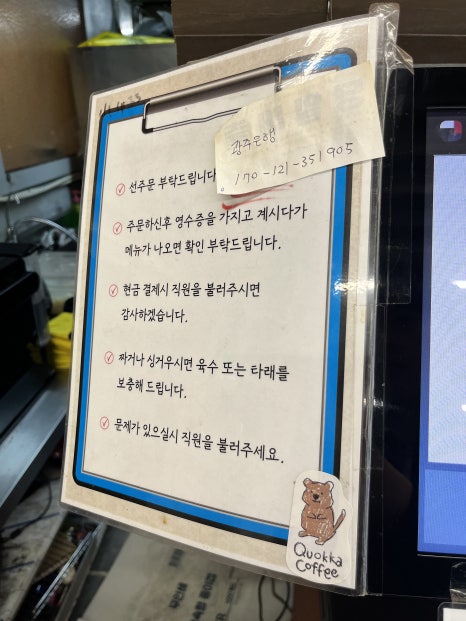 광주은행
170-121-351905
선주문 부탁드립니다
주문하신후 영수증을 가지고 계시다가
메뉴가 나오면 확인 부탁드립니다.
현금 결제시 직원을 불러주시면
감사하겠습니다.
짜거나 싱거우시면 육수 또는 타래를
보충해 드립니다.
문제가 있으실시 직원을 불러주세요.
Quokka
Coffee